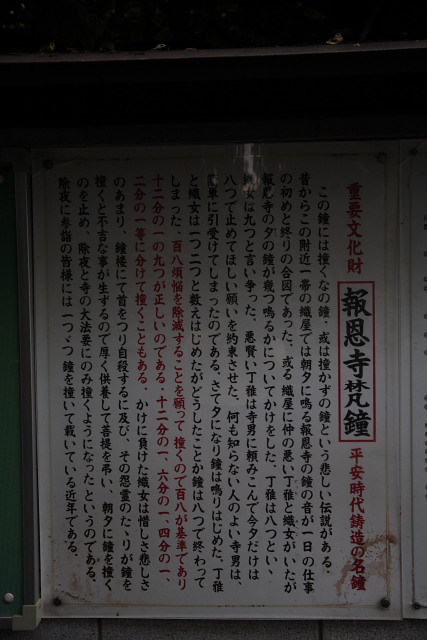 重要文化財 報恩寺梵鐘 平安時代鋳造の名鐘
この鐘には撞くなの鐘・或は撞かずの鐘という悲しい伝説がある。
昔からこの附近一帯の織屋では朝夕に鳴る報恩寺の鐘の音が一日の仕事
の初めと終りの合図であった。或る織屋に仲の悪い丁雅と織女がいたが
報恩寺の夕の鐘が幾つ鳴るかについてかけをした。丁雅は八つといゝ
織女は九つと言い争った。悪賢い丁雅は寺男に頼みこんで今夕だけは
八つで止めてほしい願いを約束させた。何も知らない人のよい寺男は、
簡単に引受けてしまったのである。さて夕になり鐘は鳴りはじめた。丁雅
と織女は一つ二つと数えはじめたがどうしたことか鐘は八つで終わって
しまった・百八煩悩を除滅することを願って撞くので百八が基準であり
十二分の一の九つが正しいのである・十二分の一、六分の一、四分の一、
二分の一等に分けて撞くこともある。かけに負けた織女は惜しさ悲しさ
のあまり、鐘楼にて首をつり自殺するに及び、その怨霊のたゝりが鐘を
撞くと不吉な事が生ずるので厚く供養して菩提を弔い、朝夕に鐘を撞く
のを止め、除夜と寺の大法要にのみ撞くようになったというのである。
除夜に参詣の皆様には一つゞつ鐘を撞いて戴いている近年である。